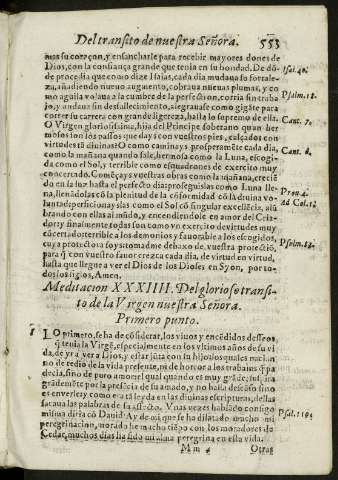 Del transito de nuestra Señora. 553
mos su corçon, y ensancharle para recibir mayores dones de
Dios, con la confiança grande que tenia en su bondad. De dõ-
de procedia que como dize Isaias, cada dia mudaua su fortale-
za, añadiendo nueuo augmento, cobraua nueuas plumas, y co
mo aguila volaua a la cumbre de la perfection, corria sin traba
jo, y andaua sin desfallecimiento, alegrauase como gigãte para
correr su carrera con grande ligereza, hasta lo supremo de ella.
O Virgen gloriosissima, hija del Principe soberano quan her
mosos son los passos que days con vuestros pies, calçados con
virtudes tã diuinas? O como caminays prosperamẽte cada dia,
como la mañana quando sale, hermosa como la Luna, escogi-
da como el Sol, y terrible como esquadrones de exercito muy
concertado. Começays vuestras obras como la mañana, creciẽ
do en la luz hasta el perfecto dia: proseguislas como Luna lle-
na, llenãdolas cõ la plenitud de la cõformidad cõ la diuina vo-
luntad: perficionayslas como el Sol cõ singular excellẽcia, alũ
brando con ellas al mũdo, y encendiendole en amor del Cria-
dor: y finalmente todas son como vn exercito de virtudes muy
cõcertado: terrible a los demonios y fauorable a los escogidos,
cuya protectora soys: tomadme debaxo de vuestra protectiõ,
para q̃ con vuestro fauor crezca cada dia, de virtud en virtud,
hasta que llegue a ver el Dios de los Dioses en Syon, por to-
dos los siglos, Amen.
Isai. 40.
Psalm. 18.
Cant. 7.
Cant. 6.
Prou. 4.
ad Col. 12
Psalm. 83.
Meditacion XXXIIII. Del glorioso transi-
to de la Virgen nuestra Señora.
Primero punto.
1 LO primero, se ha de cõsiderar, los viuos y encẽdidos desseos,
q̃ tenia la Virgẽ, especialmente en los vltimos años de su vi-
da, de yr a ver a Dios, y estar jũta con su hijo: los quales nacian
no de tedio de la vida presente, ni de horror a los trabajos q̃ pa
decia, sino de puro amor: el qual quando es muy grãde, suspira
grãdemẽte por la presẽcia de su amado, y no halla descãso sino
es en verle: y como era tã leyda en las diuinas escripturas, dellas
sacaua las palabras de su affecto. Vnas vezes hablãdo consigo
misma diria cõ Dauid: Ay de mi que se ha dilatado mucho mi
peregrinacion, morado he mucho tiẽpo con los moradores de
Cedar, muchos dias ha sido mi alma peregrina en esta vida.
Psal. 119.
Mm 4 Otras